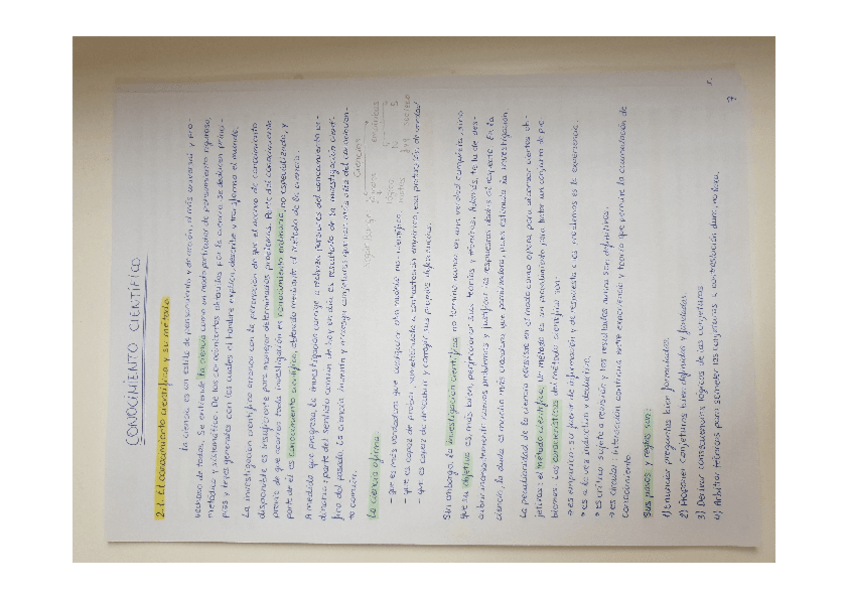 CONOCIMIENTO CIENTÍFICO
2.1. El conocimiento científico y su método
La ciencia es un estilo de pensamiento y de acción, el más universal y pro-
vechoso de todos. Se entiende la ciencia como un modo particular de pensamiento riguroso,
metódico y sistemático. De los conocimientos obtenidos por la ciencia se deducen princi-
pios y leyes generales con los cuales el hombre explica, describe y transforma el mundo.
La investigación científica arranca con la percepción de que el acervo de conocimiento
disponible es insuficiente para manejar determinados problemas. Parte del conocimiento
previo de que arranca toda investigación es conocimiento ordinario, no especializado, y
parte de él es conocimiento científico, obtenido mediante el método de la ciencia.
A medida que progresa, la investigación corrige o rechaza porciones del conocimiento or-
dinario. Parte del sentido común de hoy en día es resultado de la investigación cientí-
fica del pasado. La ciencia inventa y arriesga conjeturas que van más allá del conocimien-
to común.
La ciencia afirma:
- que es más verdadera que cualquier otro modelo no científico
- que es capaz de probar, sometiéndola a contrastación empírica, esa pretensión de verdad
- que es capaz de descubrir y corregir sus propias deficiencias.
Sin embargo, la investigación científica no termina nunca en una verdad completa, sino
que su objetivo es, más bien, perfeccionar sus teorías y técnicas. Además, trata de des-
cubrir incesantemente nuevos problemas y justificar la respuesta dada al respecto. En la
ciencia, la duda es mucho más creadora que paralizadora, pues estimula la investigación.
La peculiaridad de la ciencia consiste en el modo como opera para alcanzar ciertos ob-
jetivos: el método científico. Un método es un procedimiento para tratar un conjunto de pro-
blemas. Las características del método científico son:
→ es empírico: su fuente de información y de respuesta a es problemas es la experiencia.
→ es a la vez inductivo y deductivo.
→ es crítico: sujeto a revisión y los resultados nunca son definitivos.
→ es circular: interacción continua entre experiencia y teoría que permite la acumulación de
conocimiento.
Sus pasos y reglas son:
1) Enunciar preguntas bien formuladas.
2) Proponer conjeturas bien definidas y fundadas.
3) Derivar consecuencias lógicas de las conjeturas
4) Arbitrar técnicas para someter las conjeturas a contrastación dura, no laxa.
7